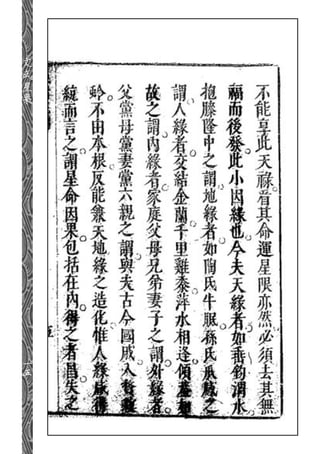 不能享此天祿者其命運星限亦然必須去其無
福而後發此小因緣也今夫天緣者如垂釣渭水
抱膝隆中之謂地緣者如陶氏牛眠孫氏瓜
謂人緣者交結金蘭千里雞黍萍水相逢傾蓋如
故之謂內緣者家庭父母兄弟妻子之謂外緣者
父黨母黨妻黨六親之謂與夫古今國戚入
不由本根反能奪天地緣之造化惟人緣
統而言之謂星命因果包括在內得之者昌失之
五